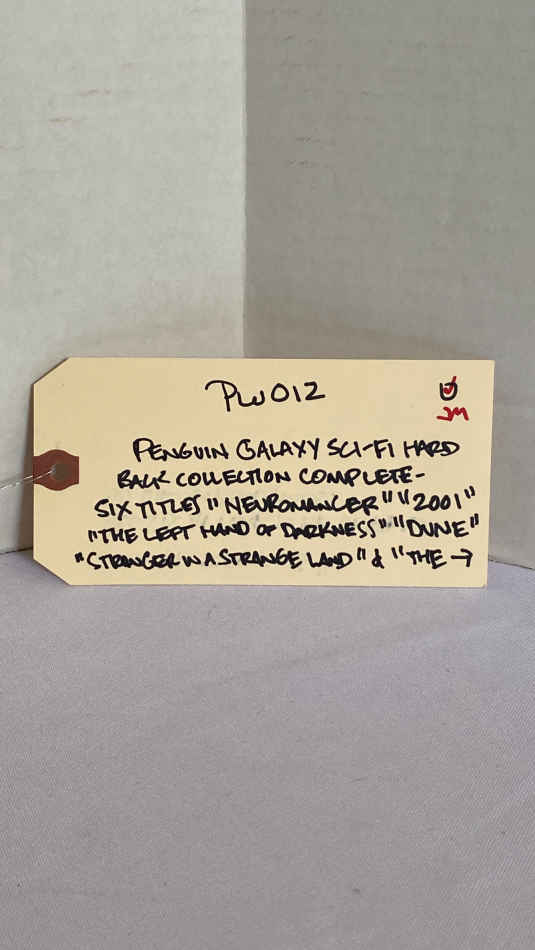 PW012
JM
PENGUIN GALAXY SCI-FI HARD
BACK COLLECTION COMPLETE-
SIX TITLES "NEUROMANCER" "2001"
"THE LEFT HAND OF DARKNESS" "DUNE"
"STRANGER IN A STRANGE LAND" & "THE →